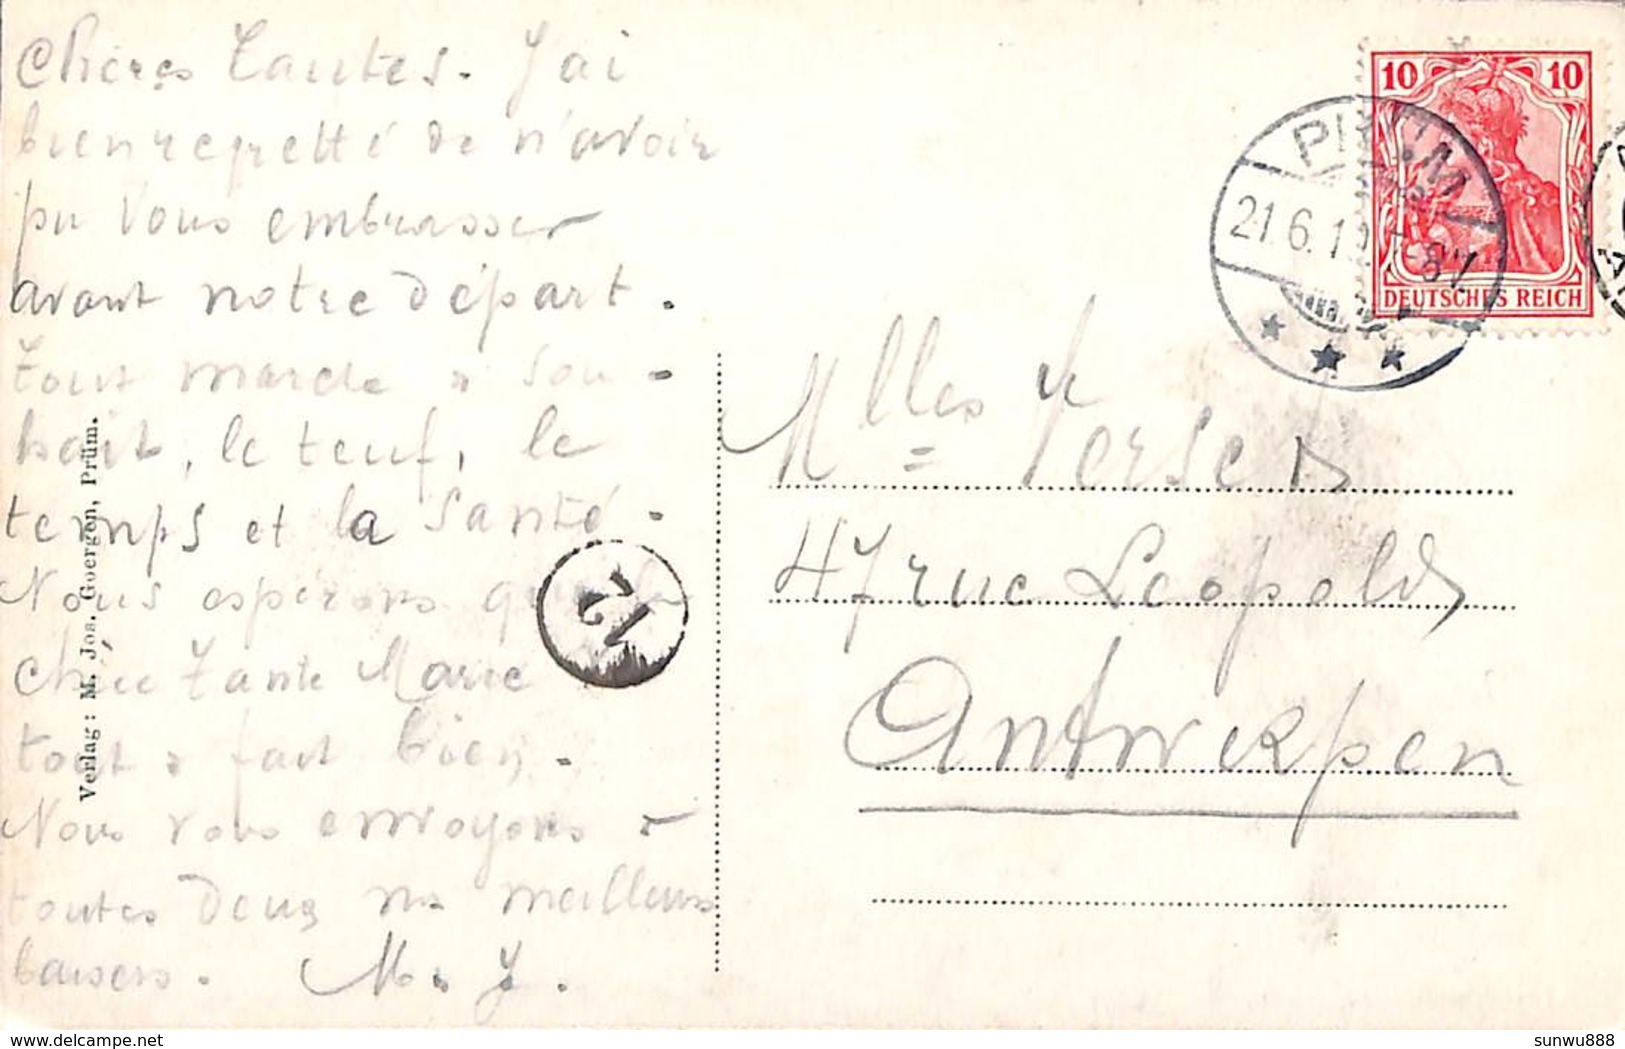 Chères Tantes. J'ai
bien regretté de n'avoir
pu vous embrasser
avant notre départ.
Tout marche à sou-
hait, le teuf, le
temps et la santé.
Nous espérons que la
chère Tante Marie
tout à fait bien.
Nous vous envoyons à
toutes deux nos meilleurs
baisers. M. J.
Verlag: M. Jos. Goergen, Prüm.
12
10 10
DEUTSCHES REICH
PRÜM
21.6.1
Mlles
47 rue Léopold
Antwerpen
delcampe.net
sunwu888